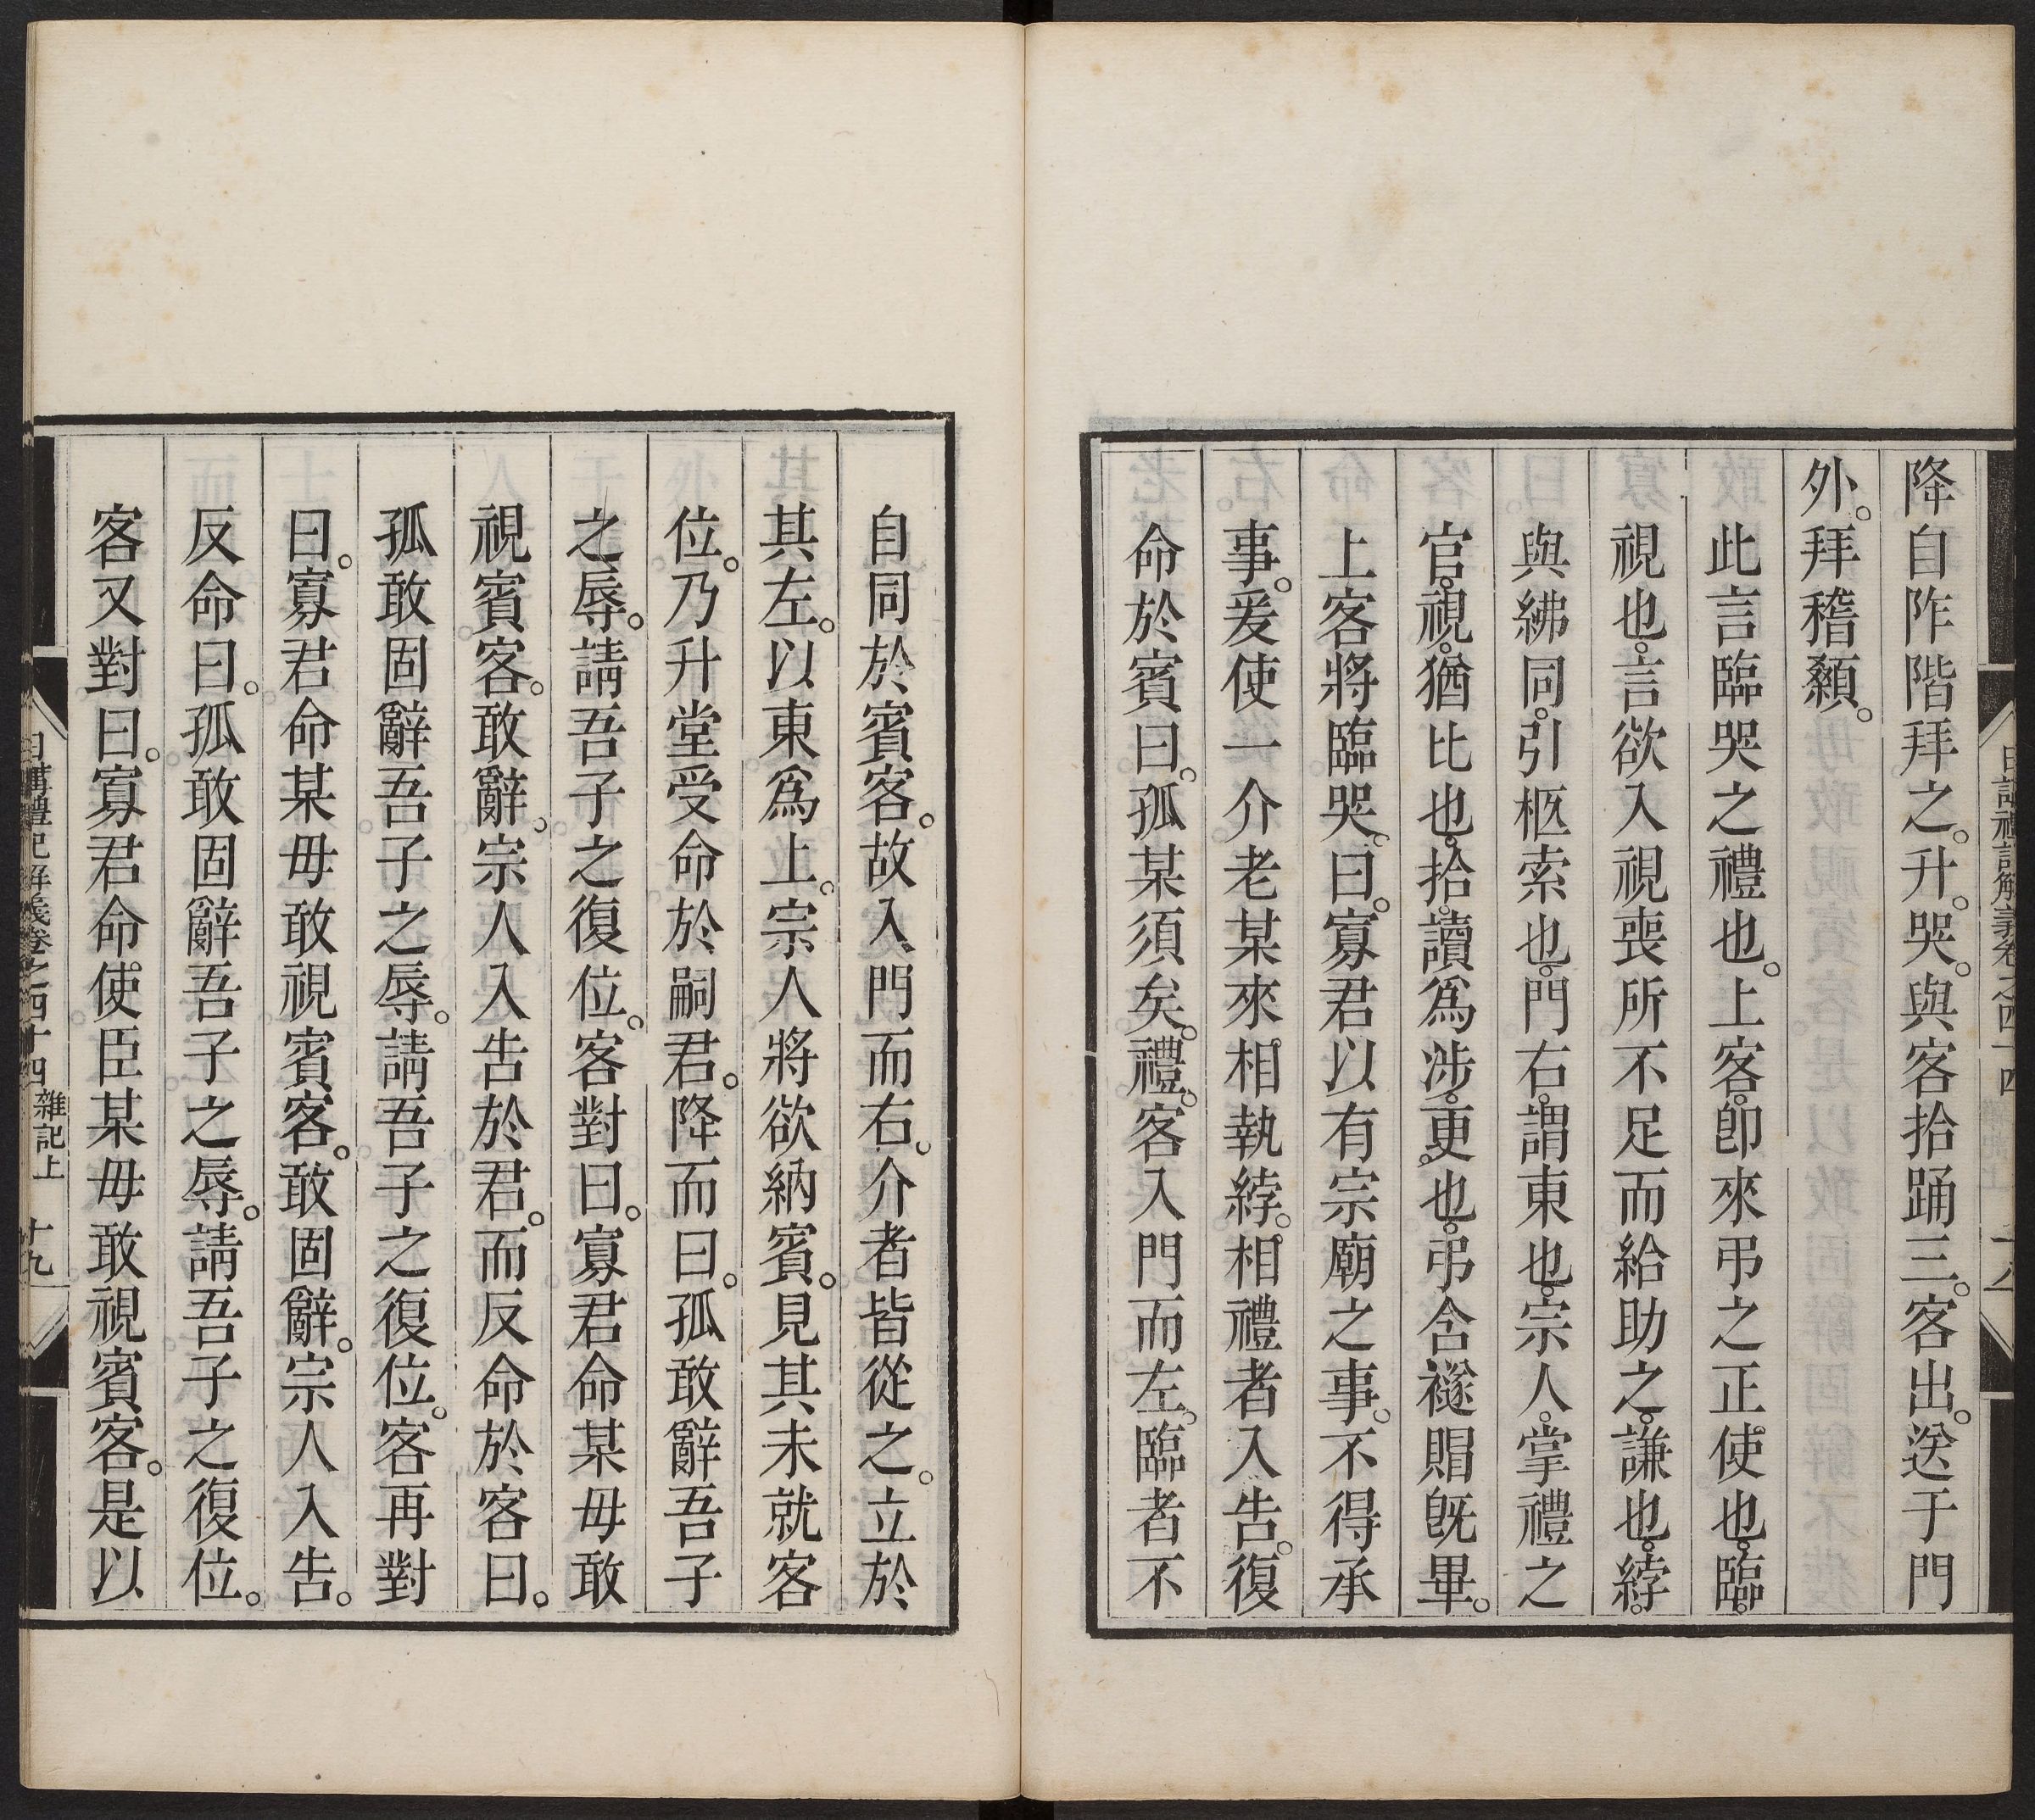 降自阼階拜之。升。哭。與客拾踊三。客出。送于門
外。拜稽顙。
此言臨哭之禮也。上客。卽來弔之正使也。臨。
視也。言欲入視喪所不足而給助之。謙也。綍。
與紼同。引柩索也。門右。謂東也。宗人。掌禮之
官。視。猶比也。拾。讀爲涉。更也。弔含襚賵旣畢。
上客將臨哭。曰。寡君以有宗廟之事。不得承
事。爰使一介老某來。相執綍。相禮者入告。復
命於賓曰。孤某須矣。禮。客入門而左。臨者不
自同於賓客。故入門而右。介者皆從之。立於
其左。以東爲上。宗人將欲納賓。見其未就客
位。乃升堂受命於嗣君。降而曰。孤敢辭吾子
之辱。請吾子之復位。客對曰。寡君命某毋敢
視賓客。敢辭。宗人入告於君。而反命於客曰。
孤敢固辭吾子之辱。請吾子之復位。客再對
曰。寡君命某毋敢視賓客。敢固辭。宗人入告。
反命曰。孤敢固辭吾子之辱。請吾子之復位。
客又對曰。寡君命使臣某毋敢視賓客。是以
日講禮記解義卷之四十四 雜記上 十九